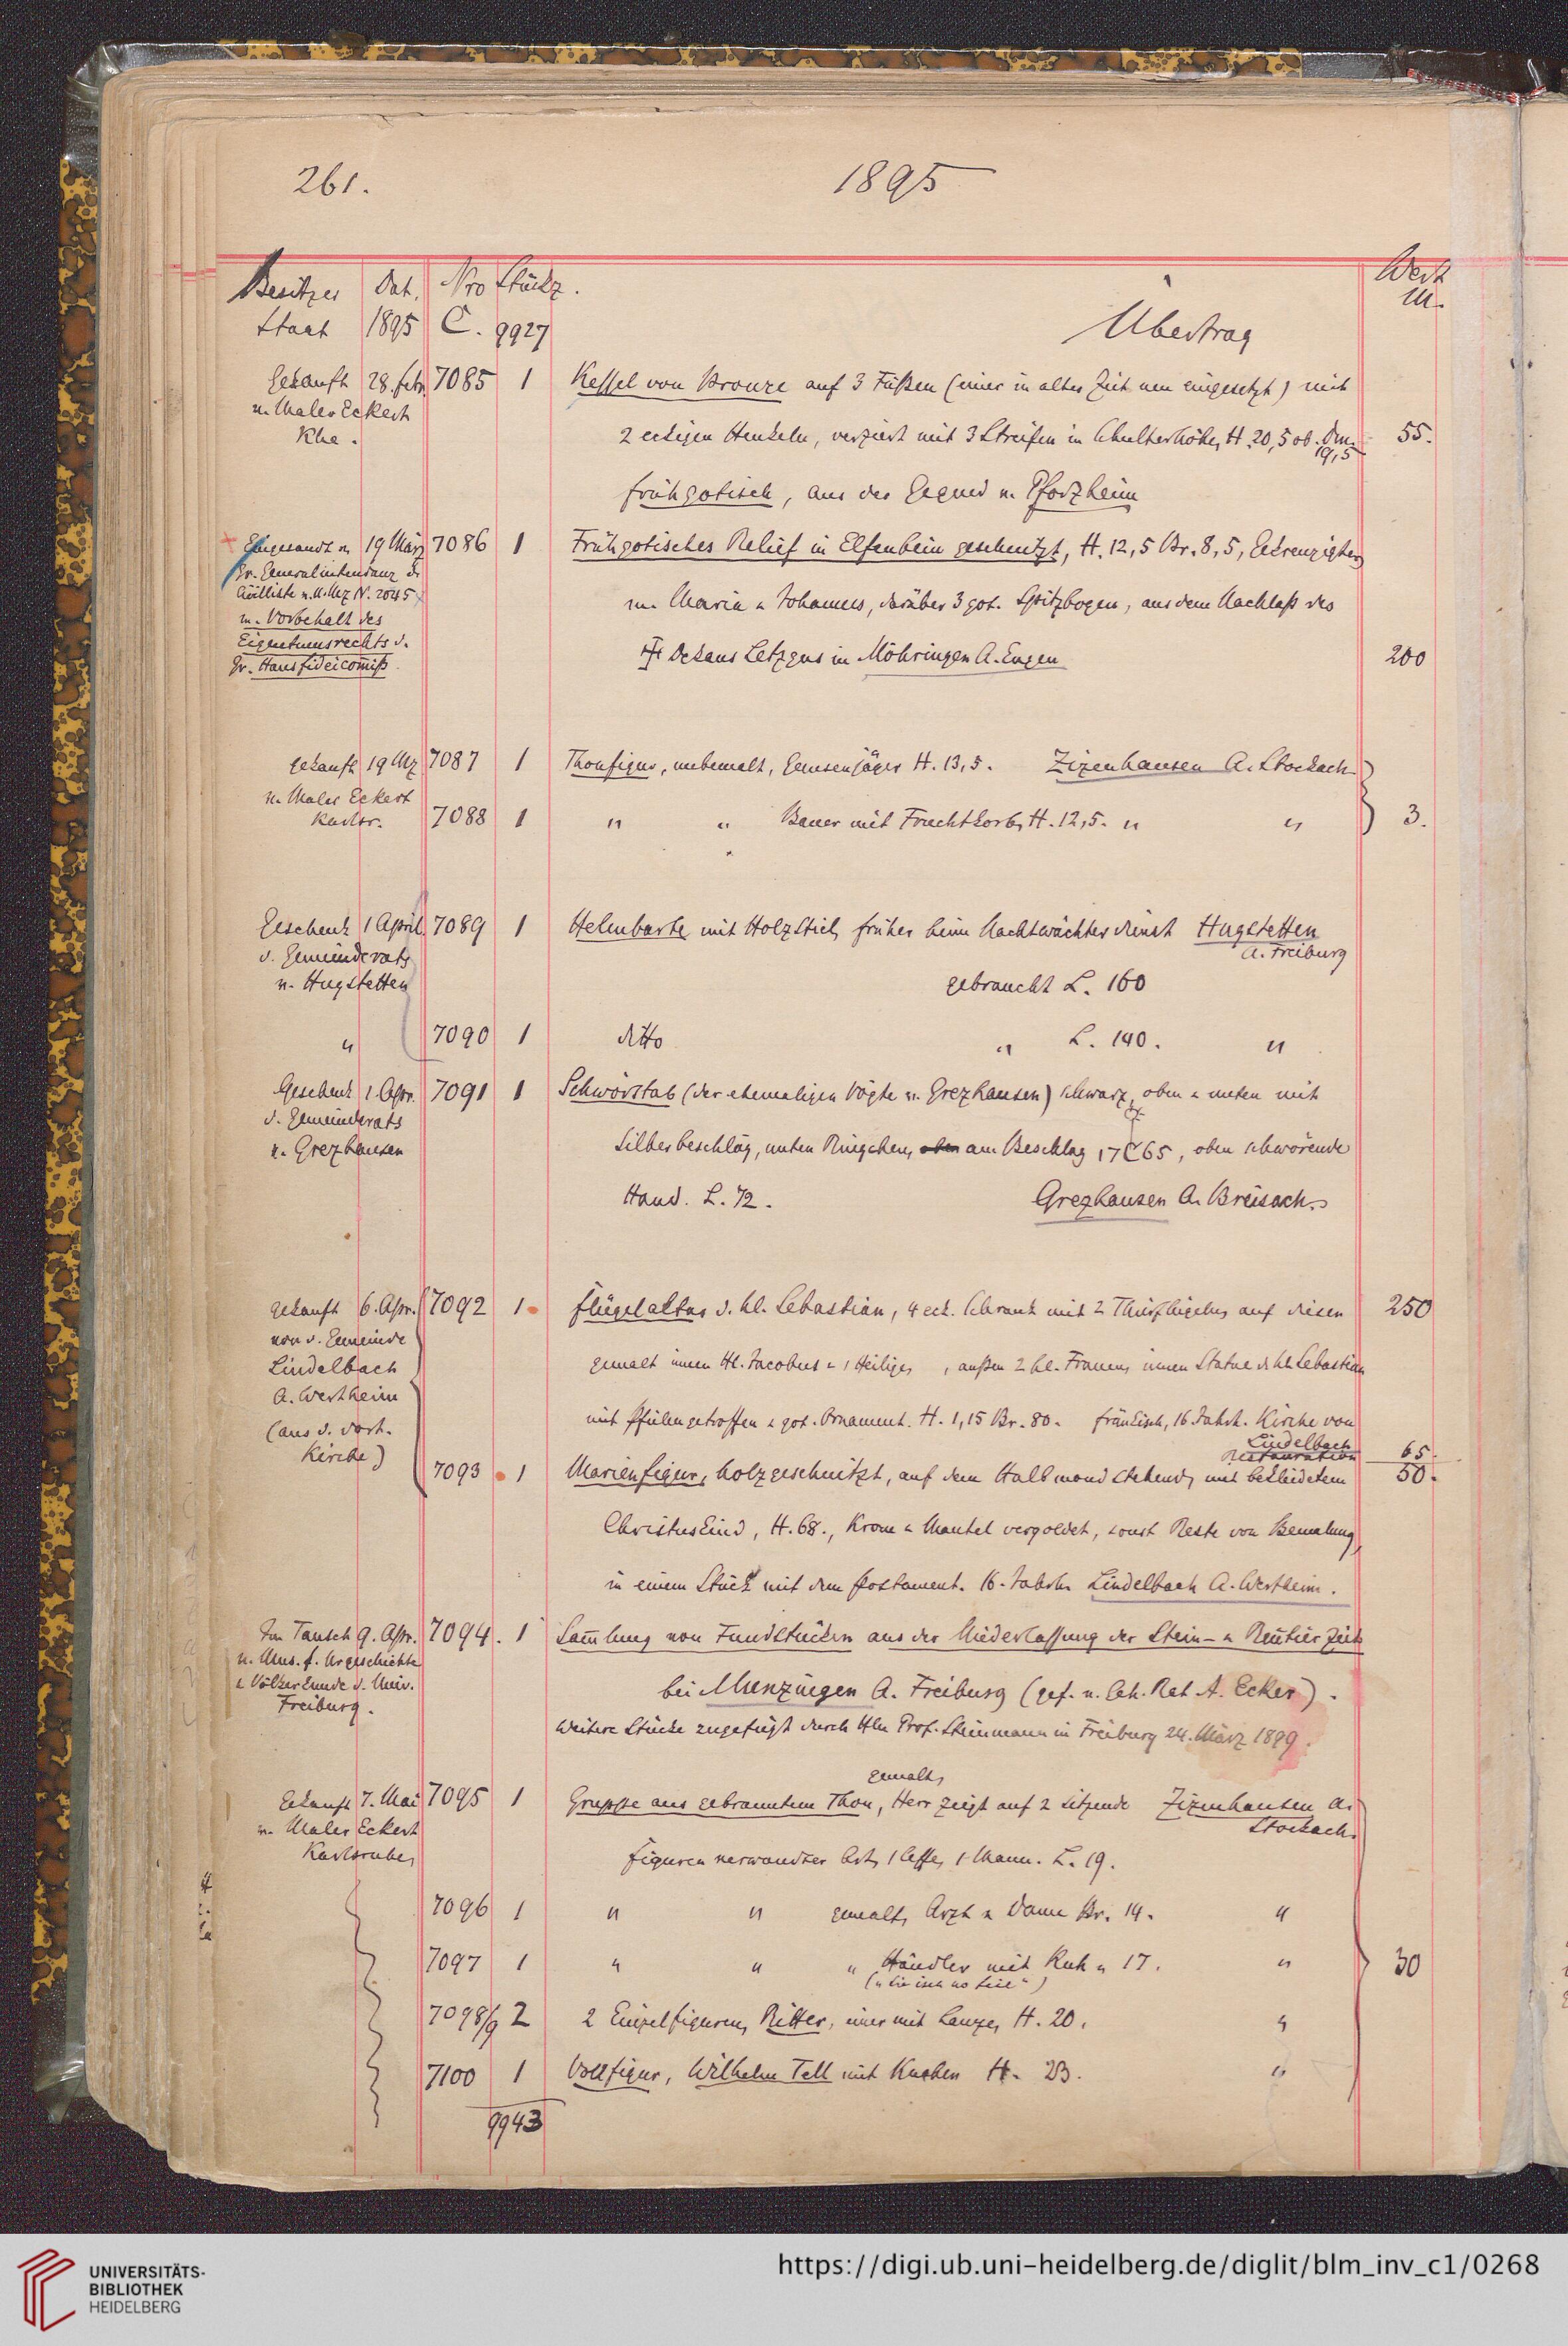 261. 1895
Besitzer Dat. Nro Stückz. Wert
M.
Staat 1895 C. 9927 Übertrag
Gekauft 28. febr. 7085 1 Kessel von Bronze auf 3 Füßen (einer in alter Zeit neu eingesetzt) mit
v. Maler Eckert
Khe. 2 eckigen Henkeln, verziert mit 3 Streifen in Schulterhöhe, H. 20,5 ob. Dm. 55.
19,5
frühgotisch, aus der Gegend v. Pforzheim
Eingesandt v. 19 März 7086 1 Frühgotisches Relief in Elfenbein geschnitzt, H. 12,5 Br. 8,5, Gekreuzigter
Gr. Generalintendanz d.
Civilliste v. 11. Mz N. 2045 m. Maria u Johannes, darüber 3 got. Spitzbogen, aus dem Nachlaß des
m. Vorbehalt des
Eigentumsrechts d. † Dekans Letzgus in Möhringen A. Engen 200
Gr. Hausfideicomiß.
gekauft 19 Mz 7087 1 Thonfigur, unbemalt, Gemsenjäger H. 13,5. Zizenhausen A. Stockach
v. Maler Eckert
Karlsr. 7088 1 " " Bauer mit Fruchtkorb, H. 12,5. " " 3.
Geschenk 1 April 7089 1 Helmbarte mit Holzstiel, früher beim Nachtwächterdienst Hugstetten
d. Gemeinderats A. Freiburg
v. Hugstetten gebraucht L. 160
" 7090 1 ditto " L. 140. "
Geschenk 1. Apr. 7091 1 Schwörstab (der ehemaligen Vögte v. Grezhausen) schwarz, oben u unten mit
d. Gemeinderats
v. Grezhausen Silberbeschläg, unten Ringchen, oben am Beschläg 17 65, oben schwörende
Hand. L. 72. Grezhausen A. Breisach.
gekauft 6. Apr. 7092 1 Flügelaltar d. hl. Sebastian, 4 eck. Schrank mit 2 Thürflügeln, auf diesen 250
von d. Gemeinde
Lindelbach gemalt innen Hl. Jacobus u 1 Heiliger, außen 2 hl. Frauen, innen Statue d. hl. Sebastian
A. Wertheim
(aus d. dort. mit Pfeilen getroffen u got. Ornament. H. 1,15 Br. 80. fränkisch, 16 Jahrh. Kirche von
Kirche) Lindelbach
Restauration 65.
7093 1 Marienfigur, holzgeschnitzt, auf dem Halbmond stehend, mit bekleidetem 50.
Christuskind, H. 68., Krone u Mantel vergoldet, sonst Reste von Bemalung,
in einem Stück mit dem Postament. 16. Jahrh. Lindelbach A. Wertheim.
Im Tausch 9. Apr. 7094. 1 Sam̄lung von Fundstücken aus der Niederlassung der Stein- u Rentierzeit
v. Mus. f. Urgeschichte
u Völkerkunde d. Univ. bei Munzingen A. Freiburg (gef. v. Geh. Rat A. Ecker).
Freiburg.
Weitere Stücke zugefügt durch Hln Prof. Steinmann in Freiburg 24. März 1899.
gemalt,
Gekauft 7. Mai 7095 1 Gruppe aus gebranntem Thon, Herr zeigt auf 2 sitzende Zizenhausen A.
v. Maler Eckert Stockach.
Karlsruhe, Figuren verwandter Art, 1 Affe, 1 Mann. L. 19.
7096 1 " " gemalt, Arzt u Dame Br. 14. "
7097 1 " " " Händler mit Kuh " 17. " 30
("Sie isch no feil")
7098/9 2 2 Einzelfiguren, Ritter, einer mit Lanze, H. 20. "
7100 1 Vollfigur, Wilhelm Tell mit Knaben H. 23. "
9943
UNIVERSITÄTS-
BIBLIOTHEK
HEIDELBERG
https://digi.ub.uni-heidelberg.de/diglit/blm_inv_c1/0268